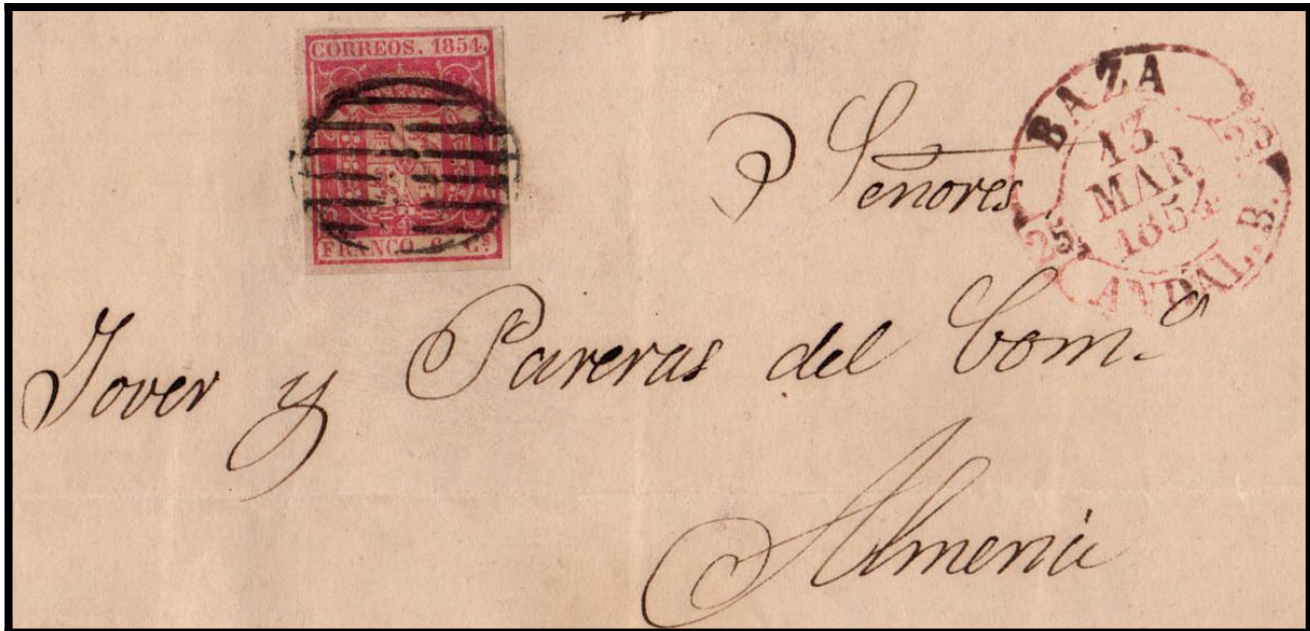 CORREOS. 1854.
FRANCO. 6. Cs
BAZA
25
13
MAR
1854
25
ANDAL. B.
Señores
Jover y Pareras del Como
Almeria